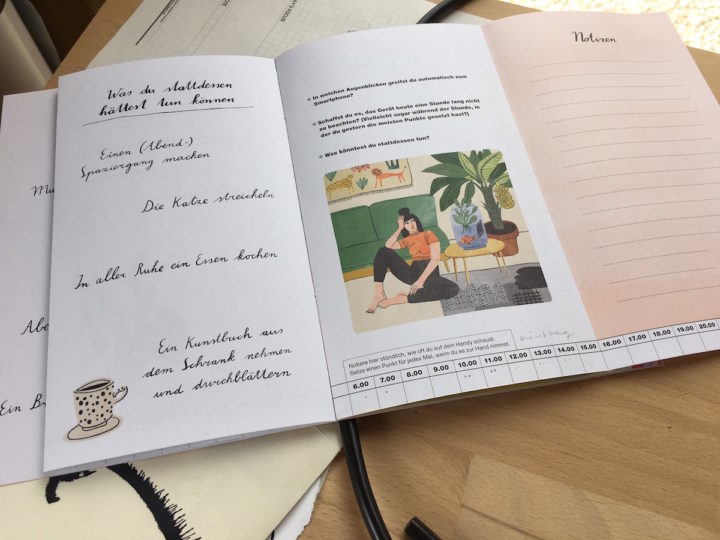 Was du stattdessen
hättest tun können
Einen (Abend-)
Spaziergang machen
Die Katze streicheln
In aller Ruhe ein Essen kochen
Ein Kunstbuch aus
dem Schrank nehmen
und durchblättern
In welchen Augenblicken greifst du automatisch zum
Smartphone?
Schaffst du es, das Gerät heute eine Stunde lang nicht
zu beachten? (Vielleicht sogar während der Stunde, in
der du gestern die meisten Punkte gesetzt hast?)
Was könntest du stattdessen tun?
Notiere hier stündlich, wie oft du auf dein Handy schaust.
Setze einen Punkt für jedes Mal, wenn du es zur Hand nimmst.
Dienstag
6.00 7.00 8.00 9.00 10.00 11.00 12.00 13.00 14.00 15.00 16.00 17.00 18.00 19.00 20.00
Notizen
Abe
Ein B